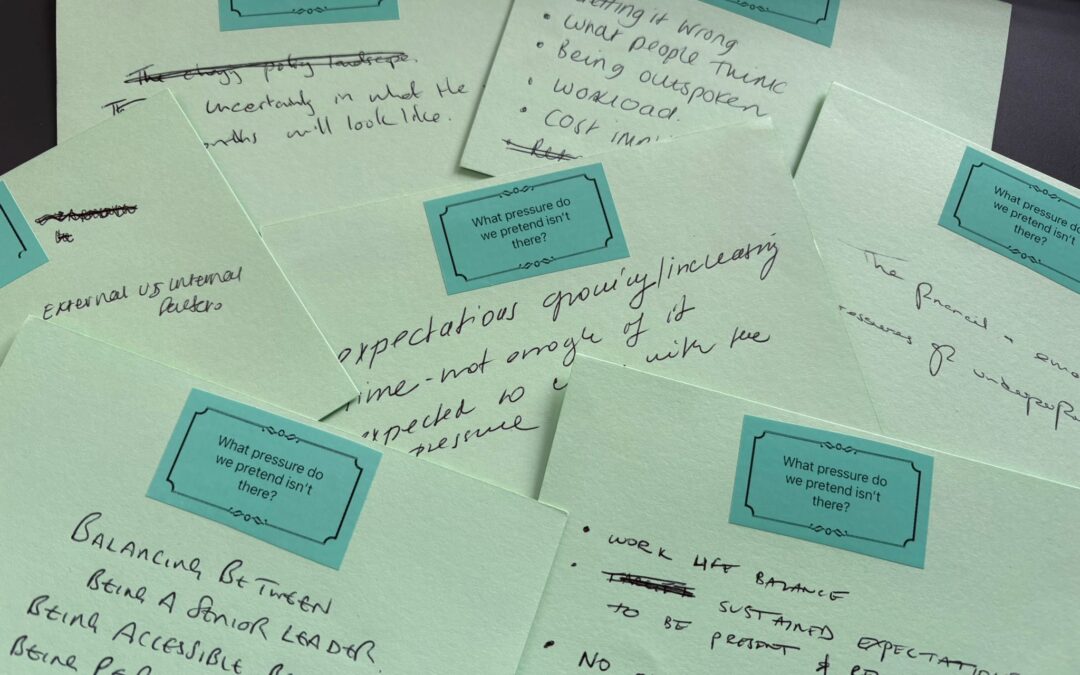 The changing policy landscape.
The uncertainty in what the
months will look like.
getting it wrong
• what people think
• Being outspoken
• WORKLOAD.
• COST
External vs internal
What pressure do
we pretend isn't
there?
expectations growing/increasing
time - not enough of it
expected to with the
pressure
What pressure do
we pretend isn't
there?
The financial +
pressures of
What pressure do
we pretend isn't
there?
BALANCING BETWEEN
BEING A SENIOR LEADER.
BEING ACCESSIBLE
BEING
What pressure do
we pretend isn't
there?
• WORK LIFE BALANCE
• SUSTAINED EXPECTATIONS
TO BE PRESENT &
• NO